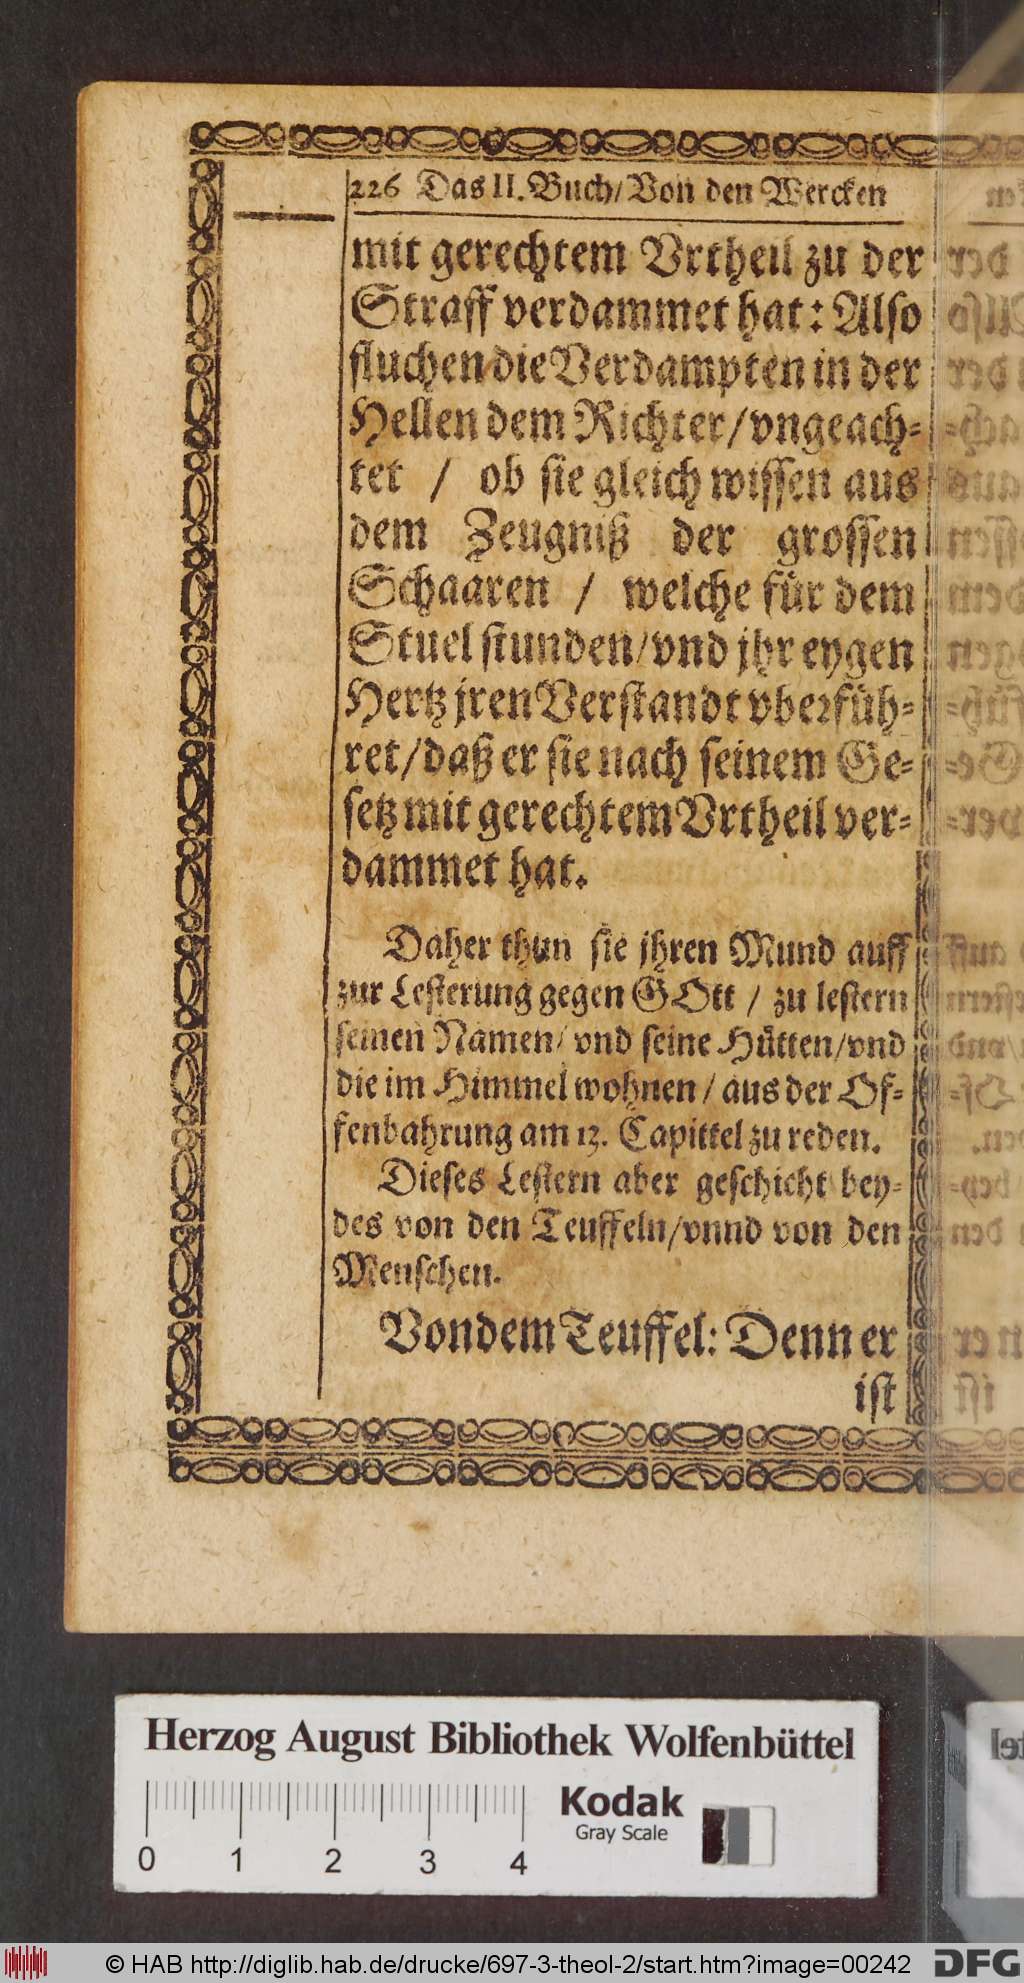 226 Das II. Buch/ Von den Wercken
mit gerechtem Vrtheil zu der
Straff verdammet hat: Also
fluchen die Verdampten in der
Hellen dem Richter/ vngeach-
tet / ob sie gleich wissen aus
dem Zeugniß der grossen
Schaaren / welche für dem
Stuel stunden/ vnd jhr eygen
Hertz jren Verstandt vberfüh-
ret/ daß er sie nach seinem Ge-
setz mit gerechtem Vrtheil ver-
dammet hat.
Daher thun sie jhren Mund auff
zur Lesterung gegen GOtt / zu lestern
seinen Namen/ vnd seine Hütten/ vnd
die im Himmel wohnen / aus der Of-
fenbahrung am 13. Capittel zu reden.
Dieses Lestern aber geschicht bey-
des von den Teuffeln/ vnnd von den
Menschen.
Von dem Teuffel: Denn er
ist
Herzog August Bibliothek Wolfenbüttel
Kodak
Gray Scale
0 1 2 3 4
© HAB http://diglib.hab.de/drucke/697-3-theol-2/start.htm?image=00242
DFG